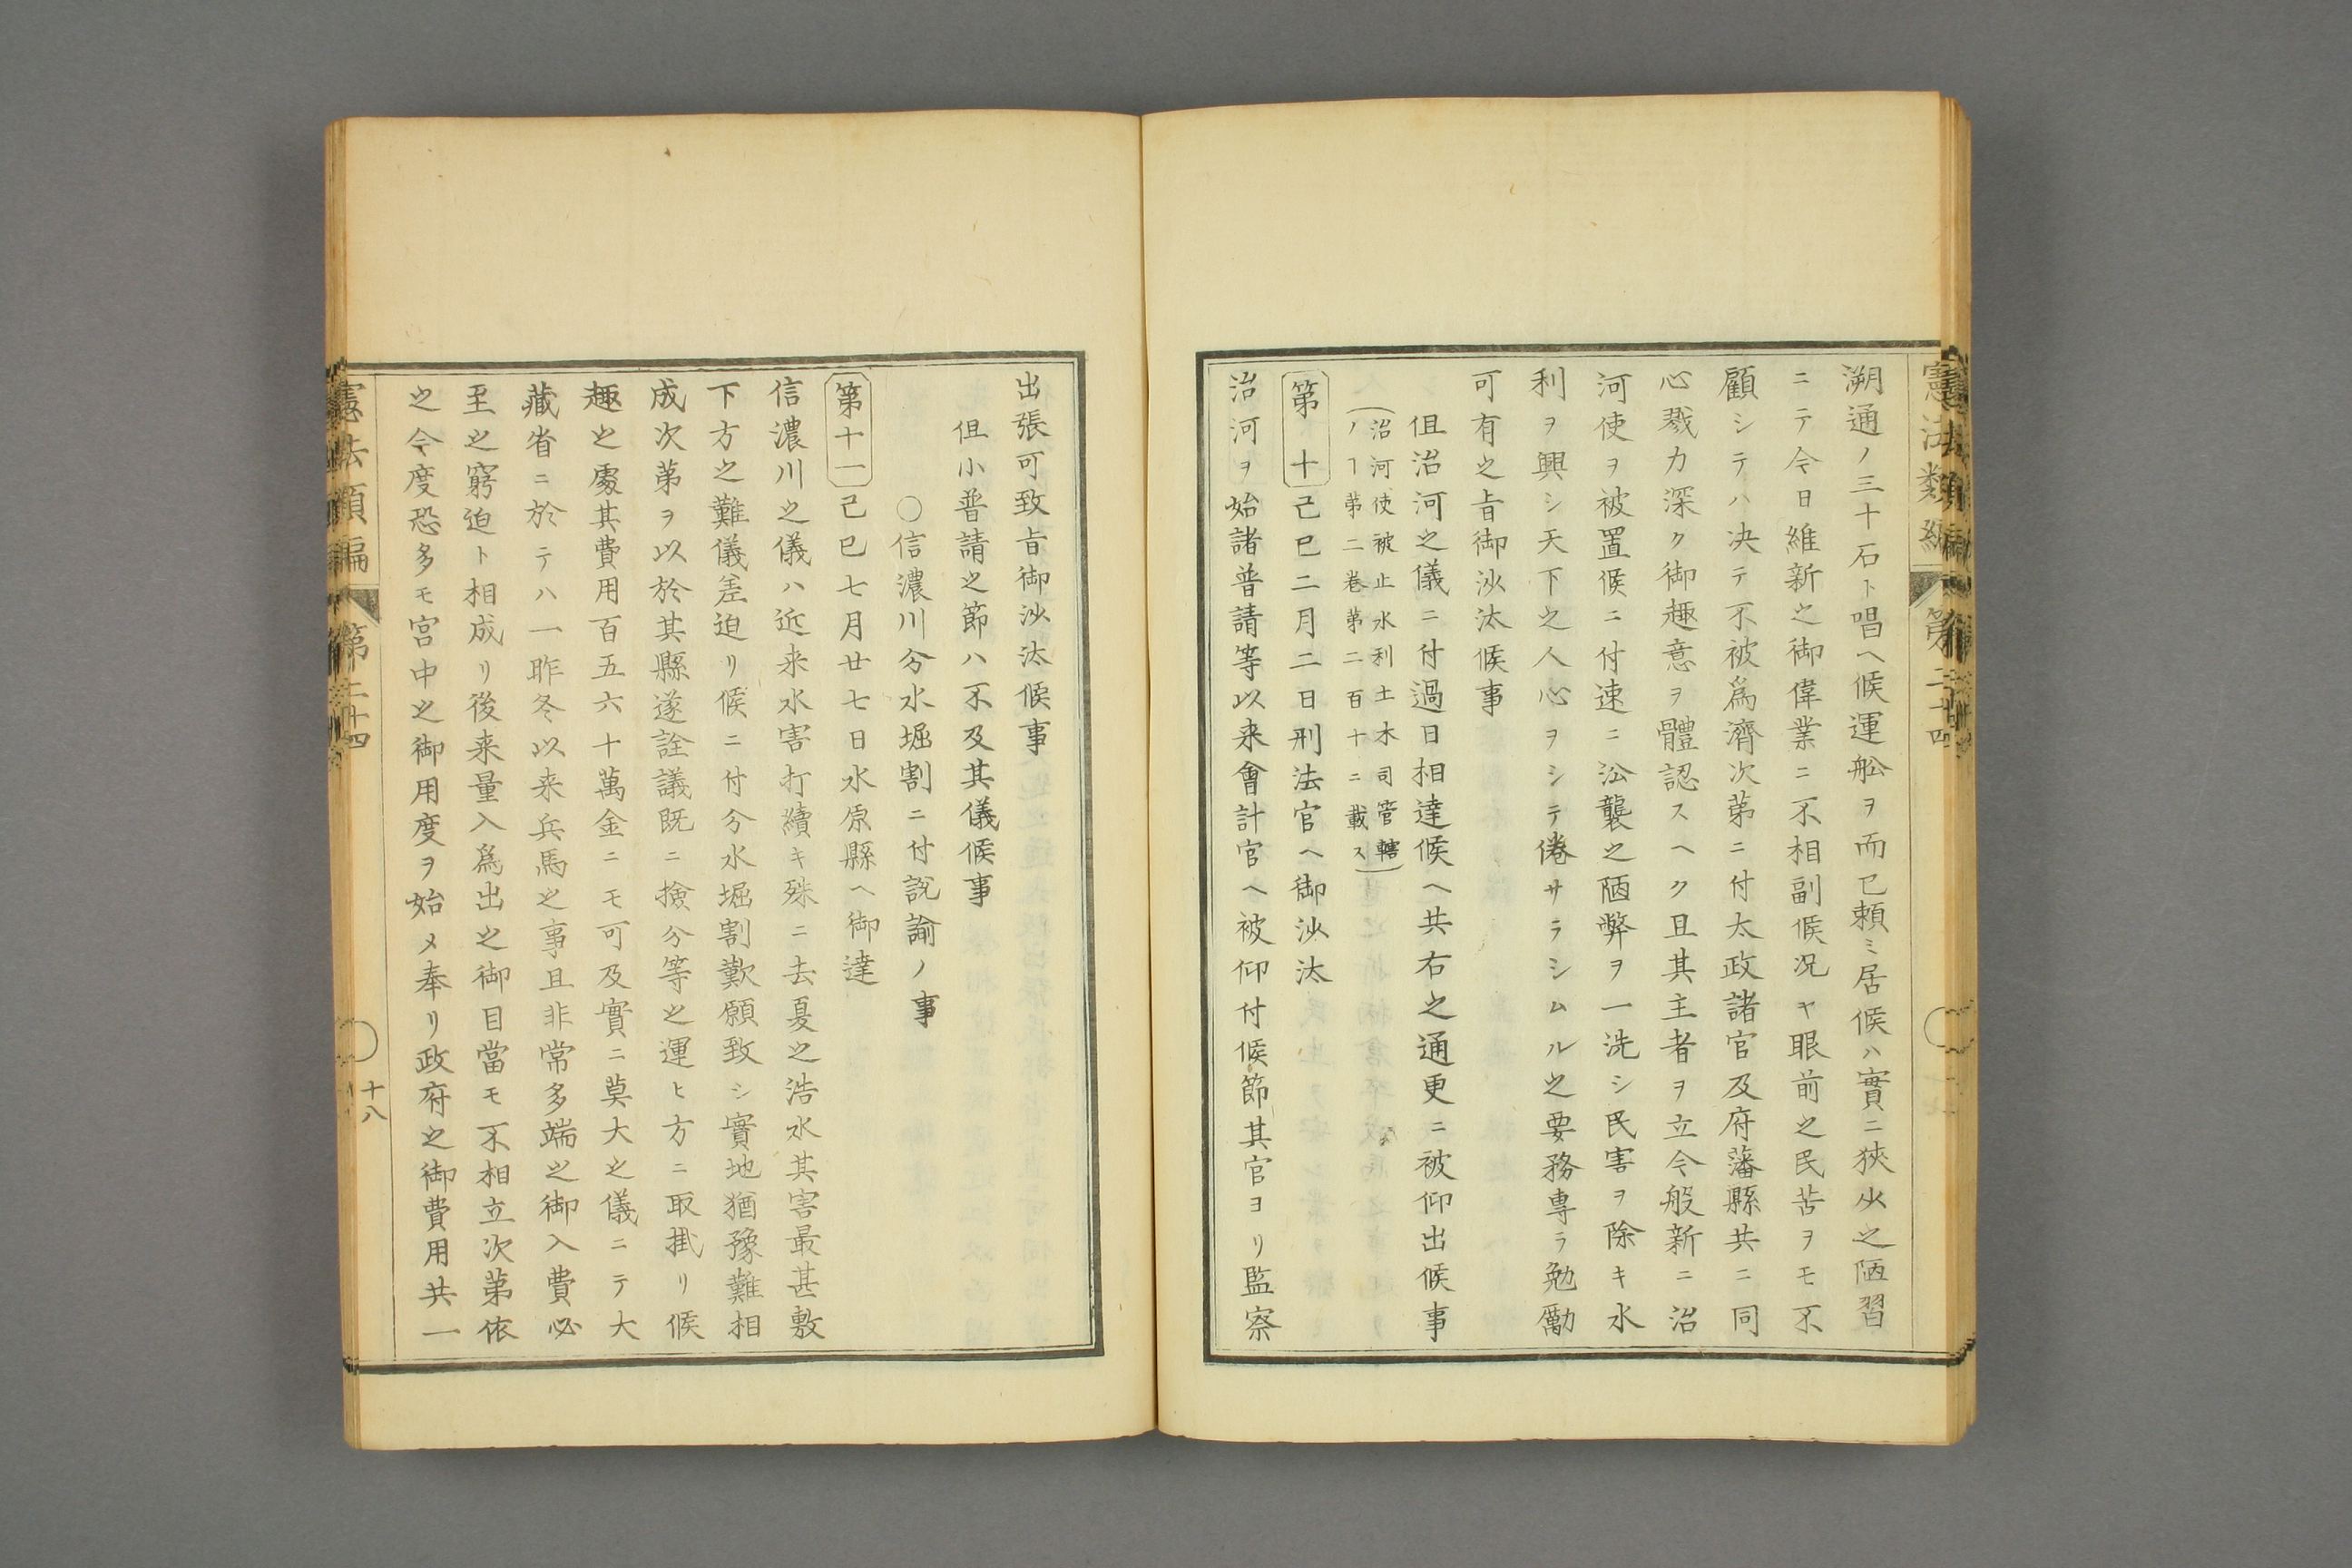 憲法類編 第二十四
溯通ノ三十石ト唱ヘ候運舩ヲ而已頼ミ居候ハ實ニ狹少之陋習
ニテ今日維新之御偉業ニ不相副候况ヤ眼前之民苦ヲモ不
顧シテハ决テ不被爲濟次第ニ付太政諸官及府藩縣共ニ同
心戮力深ク御趣意ヲ體認スヘク且其主者ヲ立令般新ニ治
河使ヲ被置候ニ付速ニ㳂襲之陋弊ヲ一洗シ民害ヲ除キ水
利ヲ興シ天下之人心ヲシテ倦サラシムル之要務専ラ勉勵
可有之旨御沙汰候事
但治河之儀ニ付過日相達候ヘ共右之通更ニ被仰出候事
(治河使被止水利土木司管轄
ノヿ第二卷第二百十ニ載ス)
第十 己巳二月二日刑法官ヘ御沙汰
治河ヲ始諸普請等以来會計官ヘ被仰付候節其官ヨリ監察
出張可致旨御沙汰候事
但小普請之節ハ不及其儀候事
○信濃川分水堀割ニ付說諭ノ事
第十一 己巳七月廿七日水原縣ヘ御達
信濃川之儀ハ近来水害打續キ殊ニ去夏之浩水其害最甚敷
下方之難儀差迫リ候ニ付分水堀割歎願致シ實地猶豫難相
成次第ヲ以於其縣遂詮議既ニ撿分等之運ヒ方ニ取掛リ候
趣之處其費用百五六十萬金ニモ可及實ニ莫大之儀ニテ大
藏省ニ於テハ一昨冬以来兵馬之事且非常多端之御入費必
至之窮迫ト相成リ後来量入爲出之御目當モ不相立次第依
之今度恐多モ宮中之御用度ヲ始メ奉リ政府之御費用共一
憲法類編 第二十四 十八